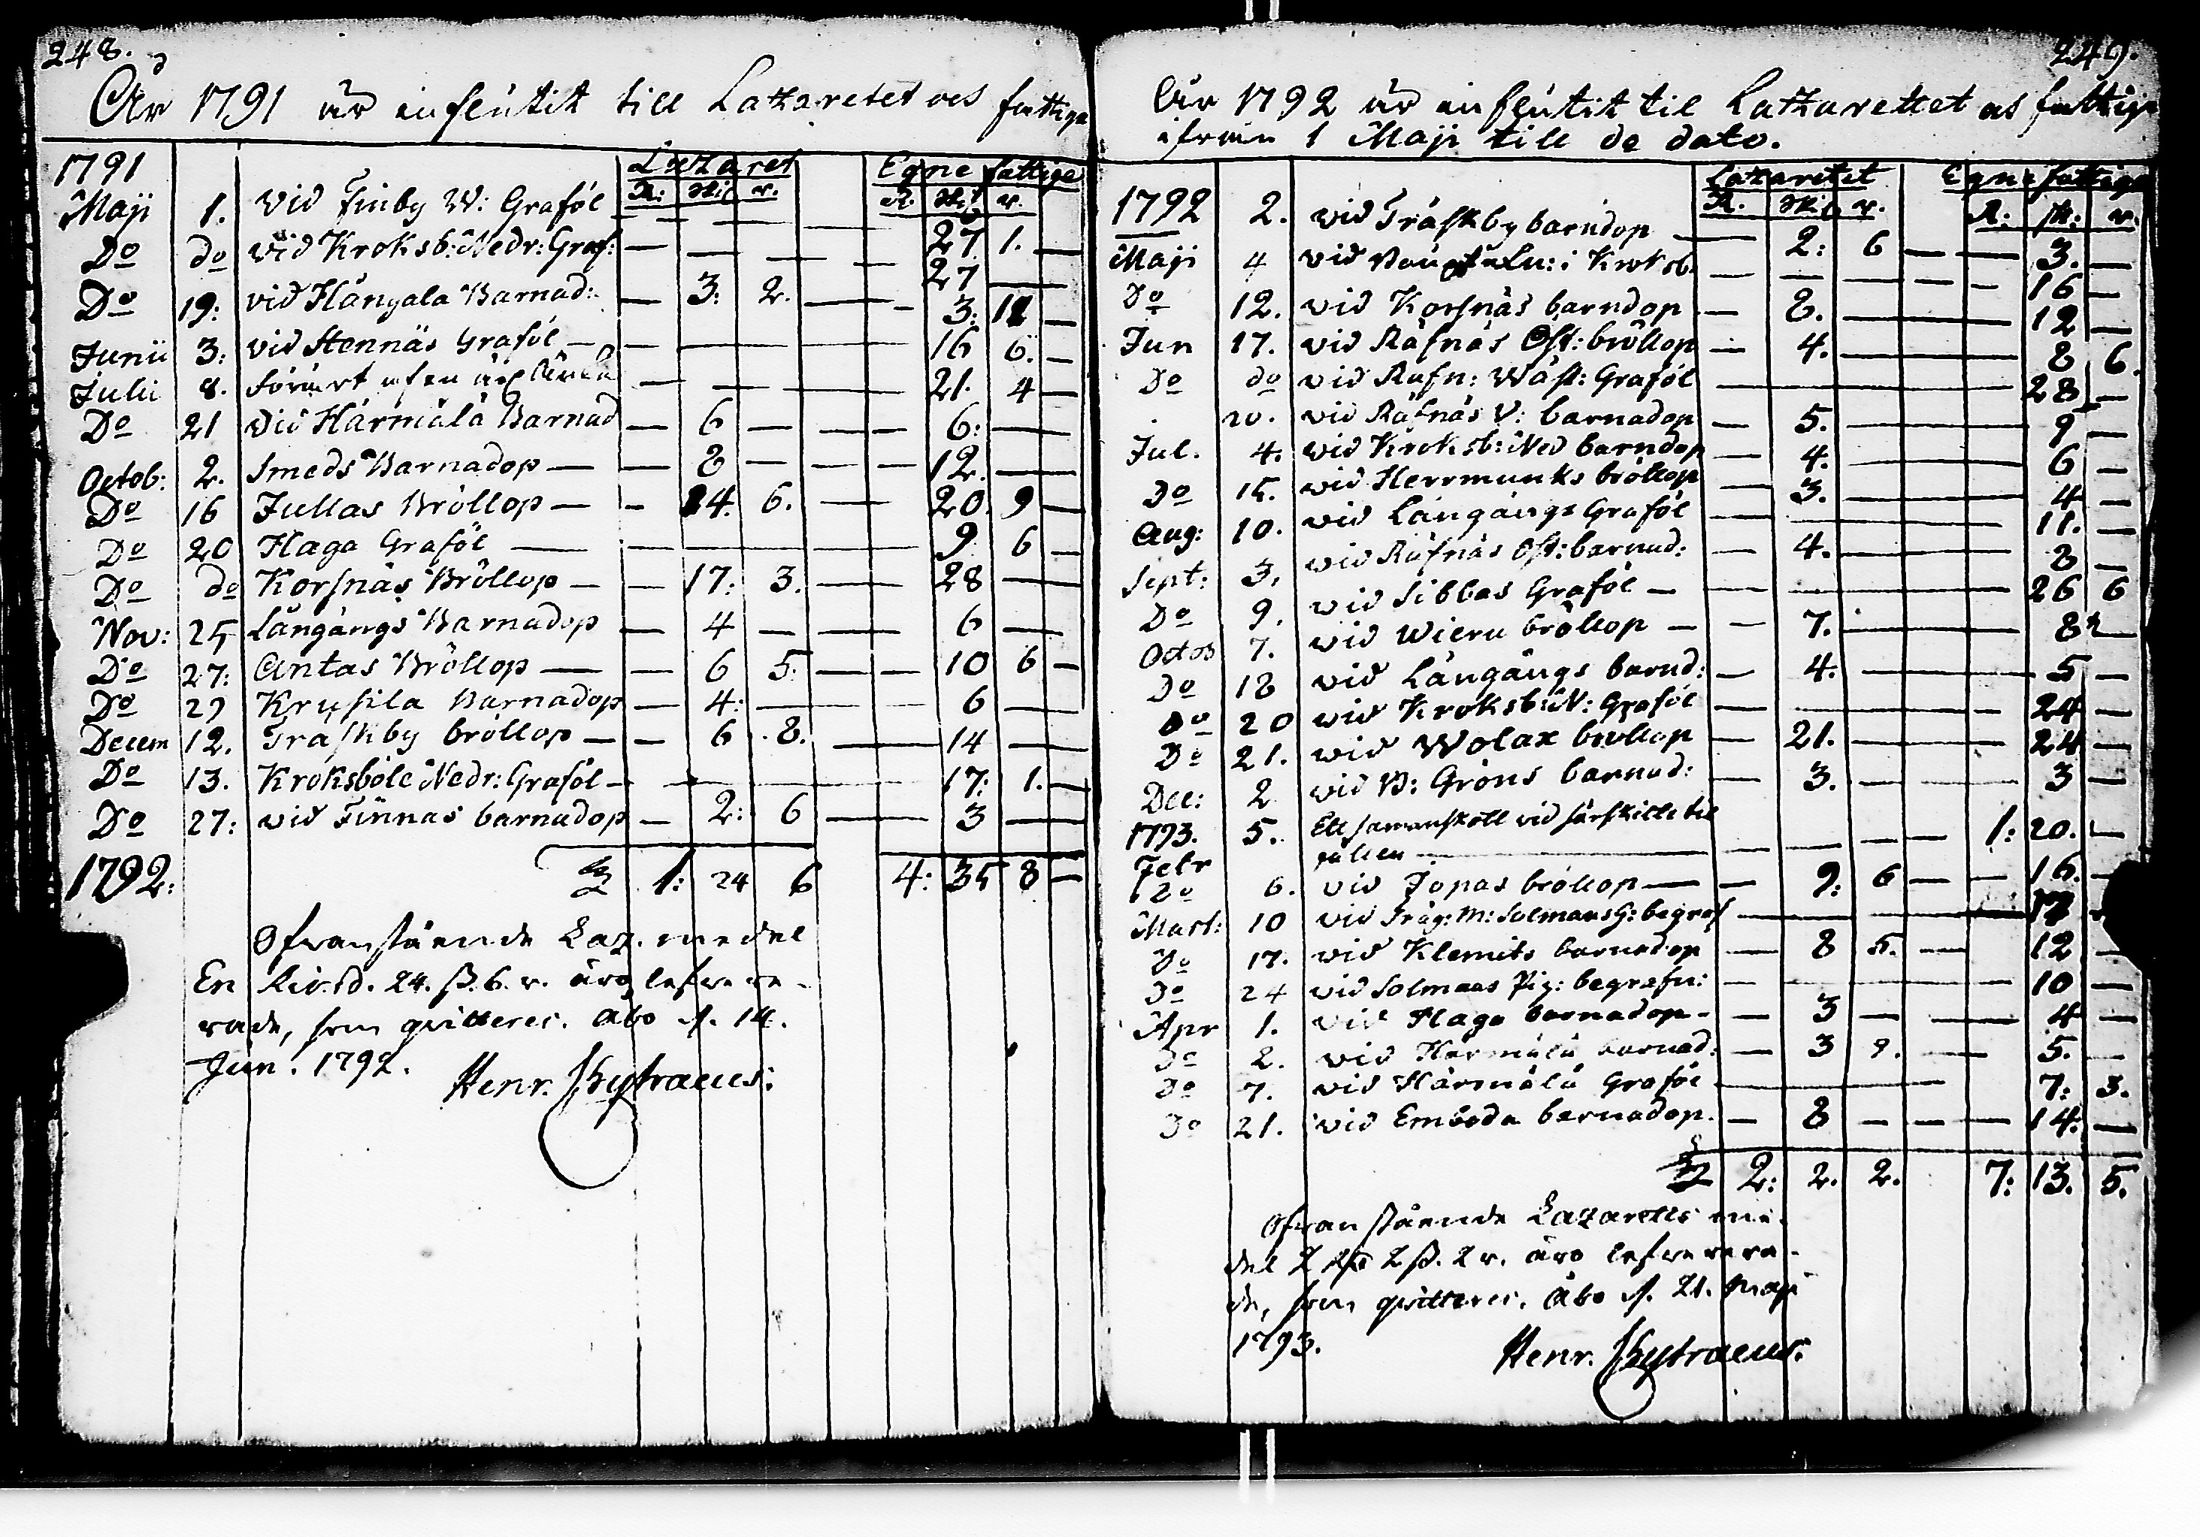 248.
År 1791 är influtit till Lazaretet och fattige
1791 Lazaret Egne fattige
R: Skil r. R. Skil r.
Maji 1. Vid Finby W: Graföl — — — 27 1. —
Do do vid Kroksb: Nedr: Graf: — — — 27 —
Do 19: vid Hängala Barnad: — 3: 2. — 3: 11 —
Junii 3: vid Stennäs Graföl — — — 16 6. —
Julii 8. förärt af en — — — 21. 4 —
Do 21 vid Härmälä Barnad — 6 — — 6: —
Octob: 2. Smeds Barnadop — — 8 — — 12. —
Do 16 Jullas Bröllop — — 14. 6. — 20. 9 —
Do 20 Haga Graföl — — — 9 6 —
Do do Korsnäs Bröllop — — 17: 3. — 28 —
Nov: 25 Långängs Barnadop — 4 — — 6 —
Do 27: Antas Bröllop — — 6 5: — 10 6 —
Do 29 Krusila Barnadop — 4: — — 6 —
Decem 12. Träskby bröllop — — 6 8. — 14 —
Do 13. Kroksböle Nedr: Graföl — — — 17: 1. —
Do 27: vid Finnas barnadop — 2: 6 — 3 —
1792: 1: 24 6 4: 35 8 —
Ofvanstående Laz. medel
En Riksd. 24. ß. 6. r. äro lefvere-
rade, som qvitteres. Åbo d. 14.
Jun. 1792.
Henr. Chytraeus.
249.
År 1792 är influtit til Lazarettet och fattige
ifrån 1 Maji till de dato.
Lazaretet Egne fattige
R. Skil r. R: sk: r.
1792 2. vid Träskby barndop — 2: 6 — 3. —
Maji 4 vid i Kroksb. — — — 16 —
Do 12. vid Korsnäs barndop — 8. — 12 —
Jun 17. vid Räfnäs Öst: bröllop — 4. — 8 6.
Do do vid Räfn: Wäst: Graföl — — 28 —
20. vid Räfnäs V: barnadop — 5. — 9 —
Jul. 4. vid Kroksb: Ned barndop — 4. — 6 —
Do 15. vid Herrmunks bröllop — 3. — 4 —
Aug: 10. vid Långängs Graföl — — 11. —
Sept: 3. vid Räfnäs Öst: barnad: — 4. — 8 —
Do 9. vid Sibbas Graföl — — — 26 6
Octob 7. vid Wieru bröllop — — 7. — 8 —
Do 18 vid Långängs barnd: — 4. — 5 —
Do 20 vid Kroksb: N: Graföl — — 24 —
Do 21. vid Wolax bröllop — 21. — 24 —
Dec: 2 vid B: Gröns barnad: — 3. — 3 —
1793. 5. Ett samanskott vid särskilte til
fällen — — — 1: 20. —
Febr
Do 6. vid Jopas bröllop — — 9: 6 — 16. —
Mart: 10 vid Träg: M: Solmans G: begraf — — 17
Do 17. vid Klemits barnadop — 8 5. — 12 —
Do 24 vid Solmans Pig: begrafn: — 10 —
Apr 1. vid Haga barnadop — 3 — 4 —
Do 2. vid Härmälä barnad: — 3 9. — 5. —
Do 7. vid Härmälä Graföl — — 7: 3.
Do 21. vid Emboda barnadop. — 8 — — 14: —
2: 2. 2. 7: 13. 5.
Ofvanstående Lazaretts me-
del 2 Rd 2 ß. 2 r. äro lefverera-
de, som qvitteres. Åbo d. 21. Maji
1793.
Henr. Chytraeus.